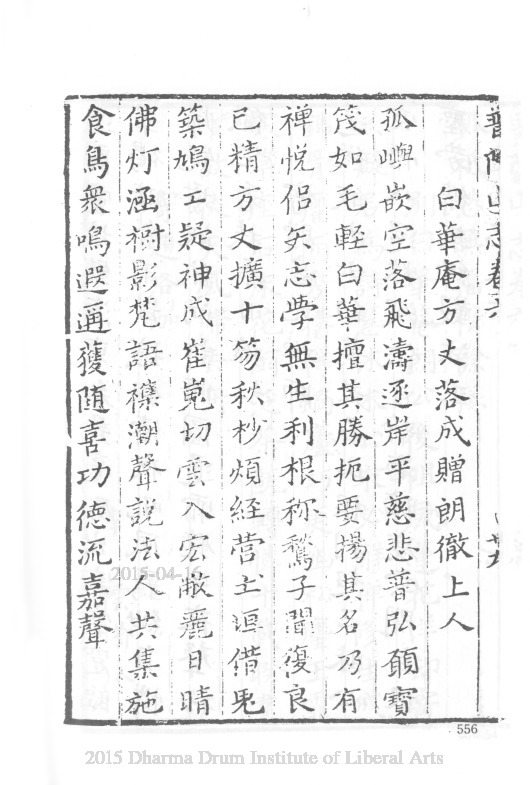 普陀山志卷六
白華庵方丈落成贈朗徹上人
孤嶼嵌空落飛濤逐岸平慈悲普弘願寶
筏如毛輕白華擅其勝扼要揚其名乃有
禅悅侶矢志學無生利根称鶖子聞復良
已精方丈擴十笏秋杪煩経营土垣借兎
築鳩工疑神成崔嵬切雲入宏敞麗日晴
佛灯涵樹影梵語襍潮聲說法人共集施
食鳥衆鳴遐邇獲随喜功德流嘉聲
2015-04-16
556
2015 Dharma Drum Institute of Liberal Arts